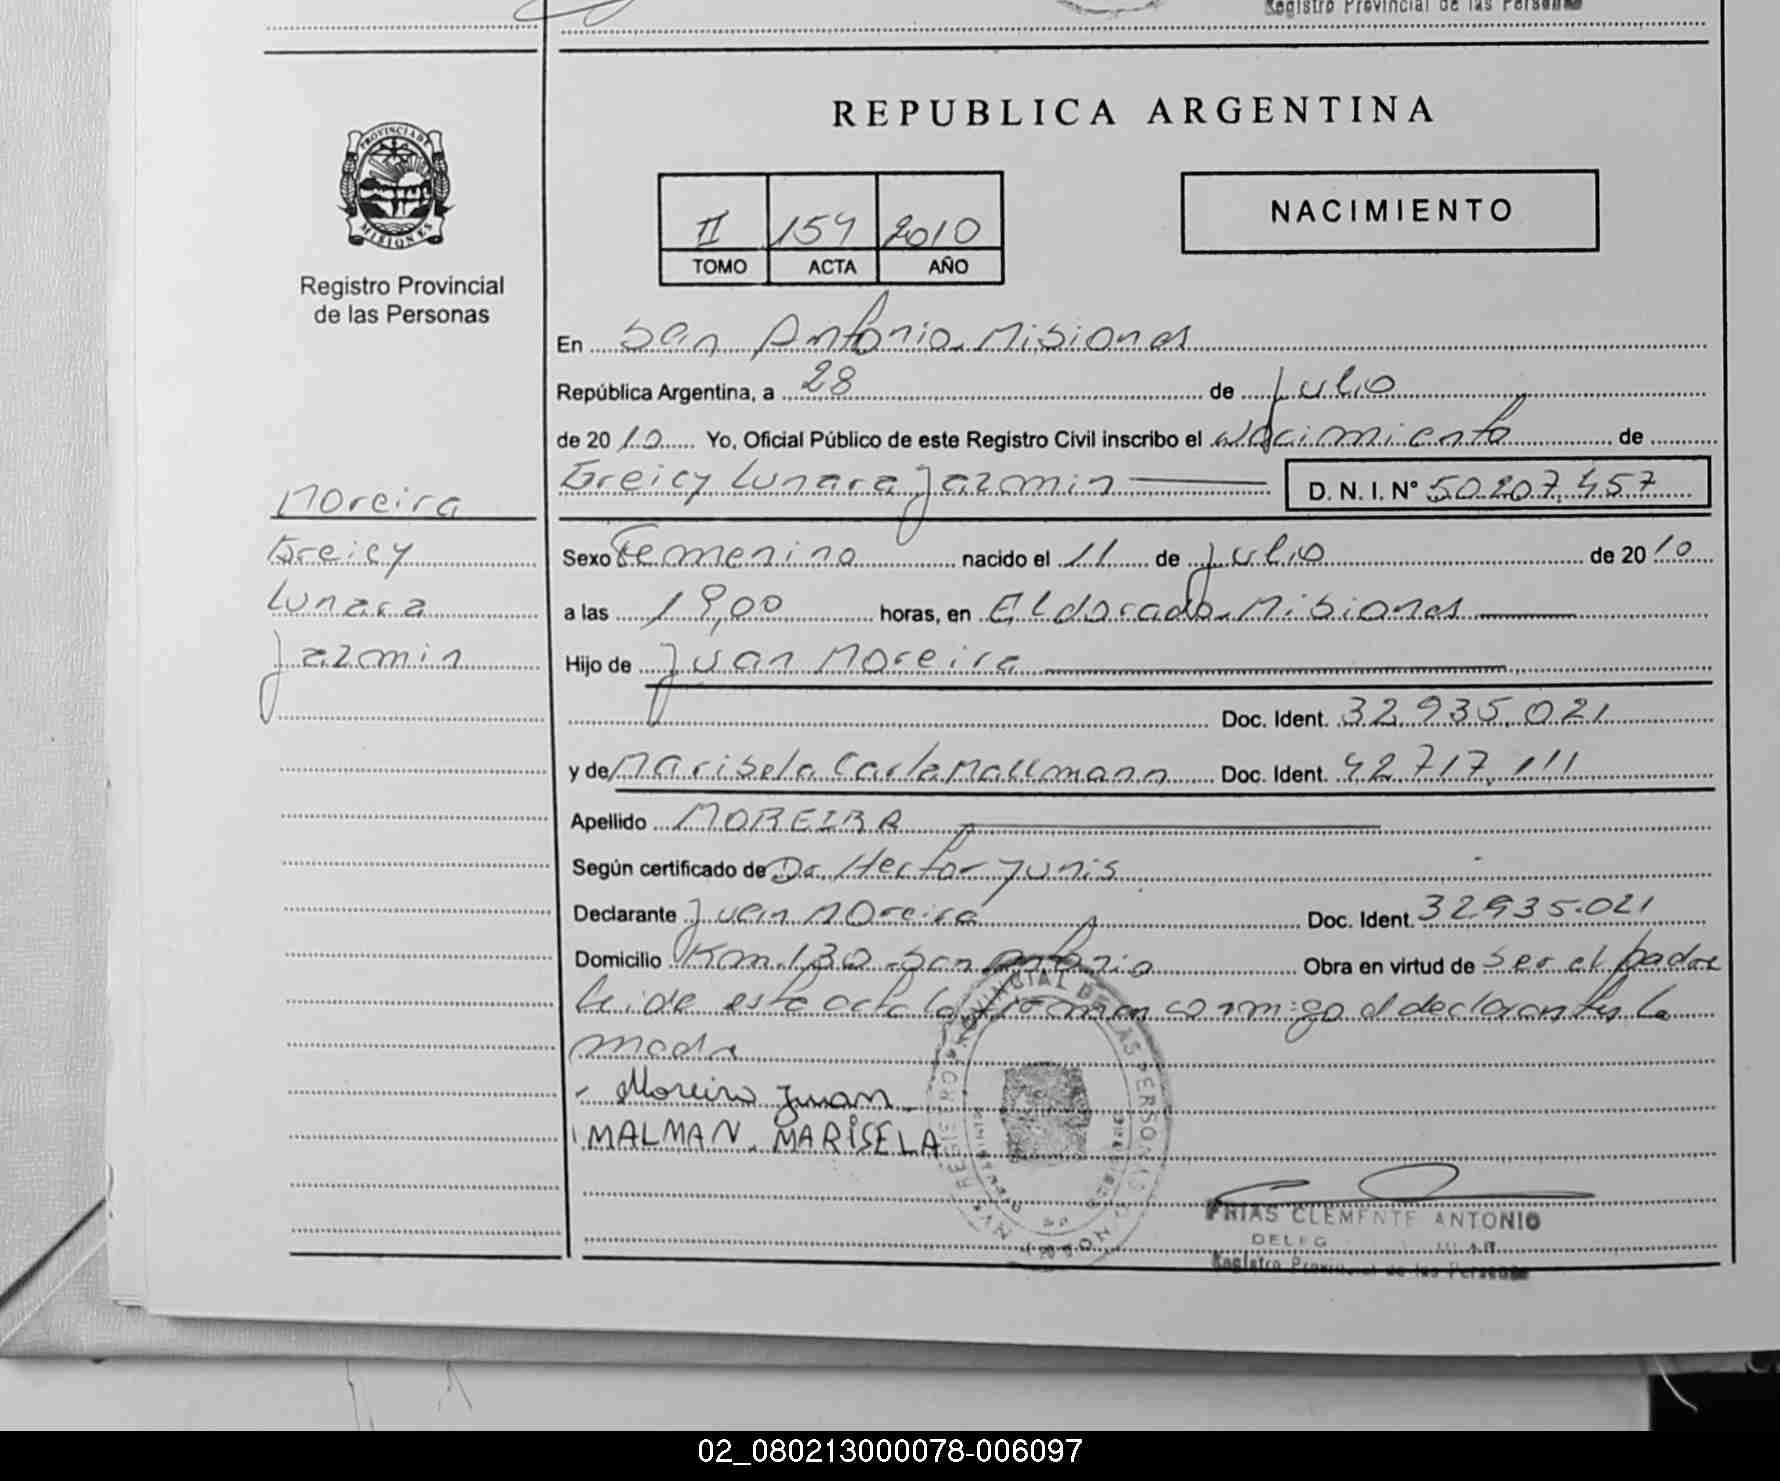 Registro Provincial de las Personas
REPUBLICA ARGENTINA
PROVINCIA DE
MISIONES
Registro Provincial
de las Personas
II 154 2010
TOMO ACTA AÑO
NACIMIENTO
En San Antonio. Misiones
República Argentina, a 28 de Julio
de 2010 Yo, Oficial Público de este Registro Civil inscribo el Nacimiento de
Greicy Lunara Jazmin D. N. I. N° 50.207.457
Moreira
Greicy
Lunara
Jazmin
Sexo Femenino nacido el 11 de Julio de 2010
a las 19,00 horas, en Eldorado. Misiones
Hijo de Juan Moreira
Doc. Ident. 32.935.021
y de Marisela Carla Mallmann Doc. Ident. 42.717.111
Apellido MOREIRA
Según certificado de Dr. Hector Yunis
Declarante Juan Moreira Doc. Ident. 32.935.021
Domicilio Km. 130 San Antonio Obra en virtud de ser el padre
leida este acta la firman conmigo el declarante y la
madre
Moreira Juan
MALMAN. MARISELA
FRIAS CLEMENTE ANTONIO
Registro Provincial de las Personas
02_080213000078-006097